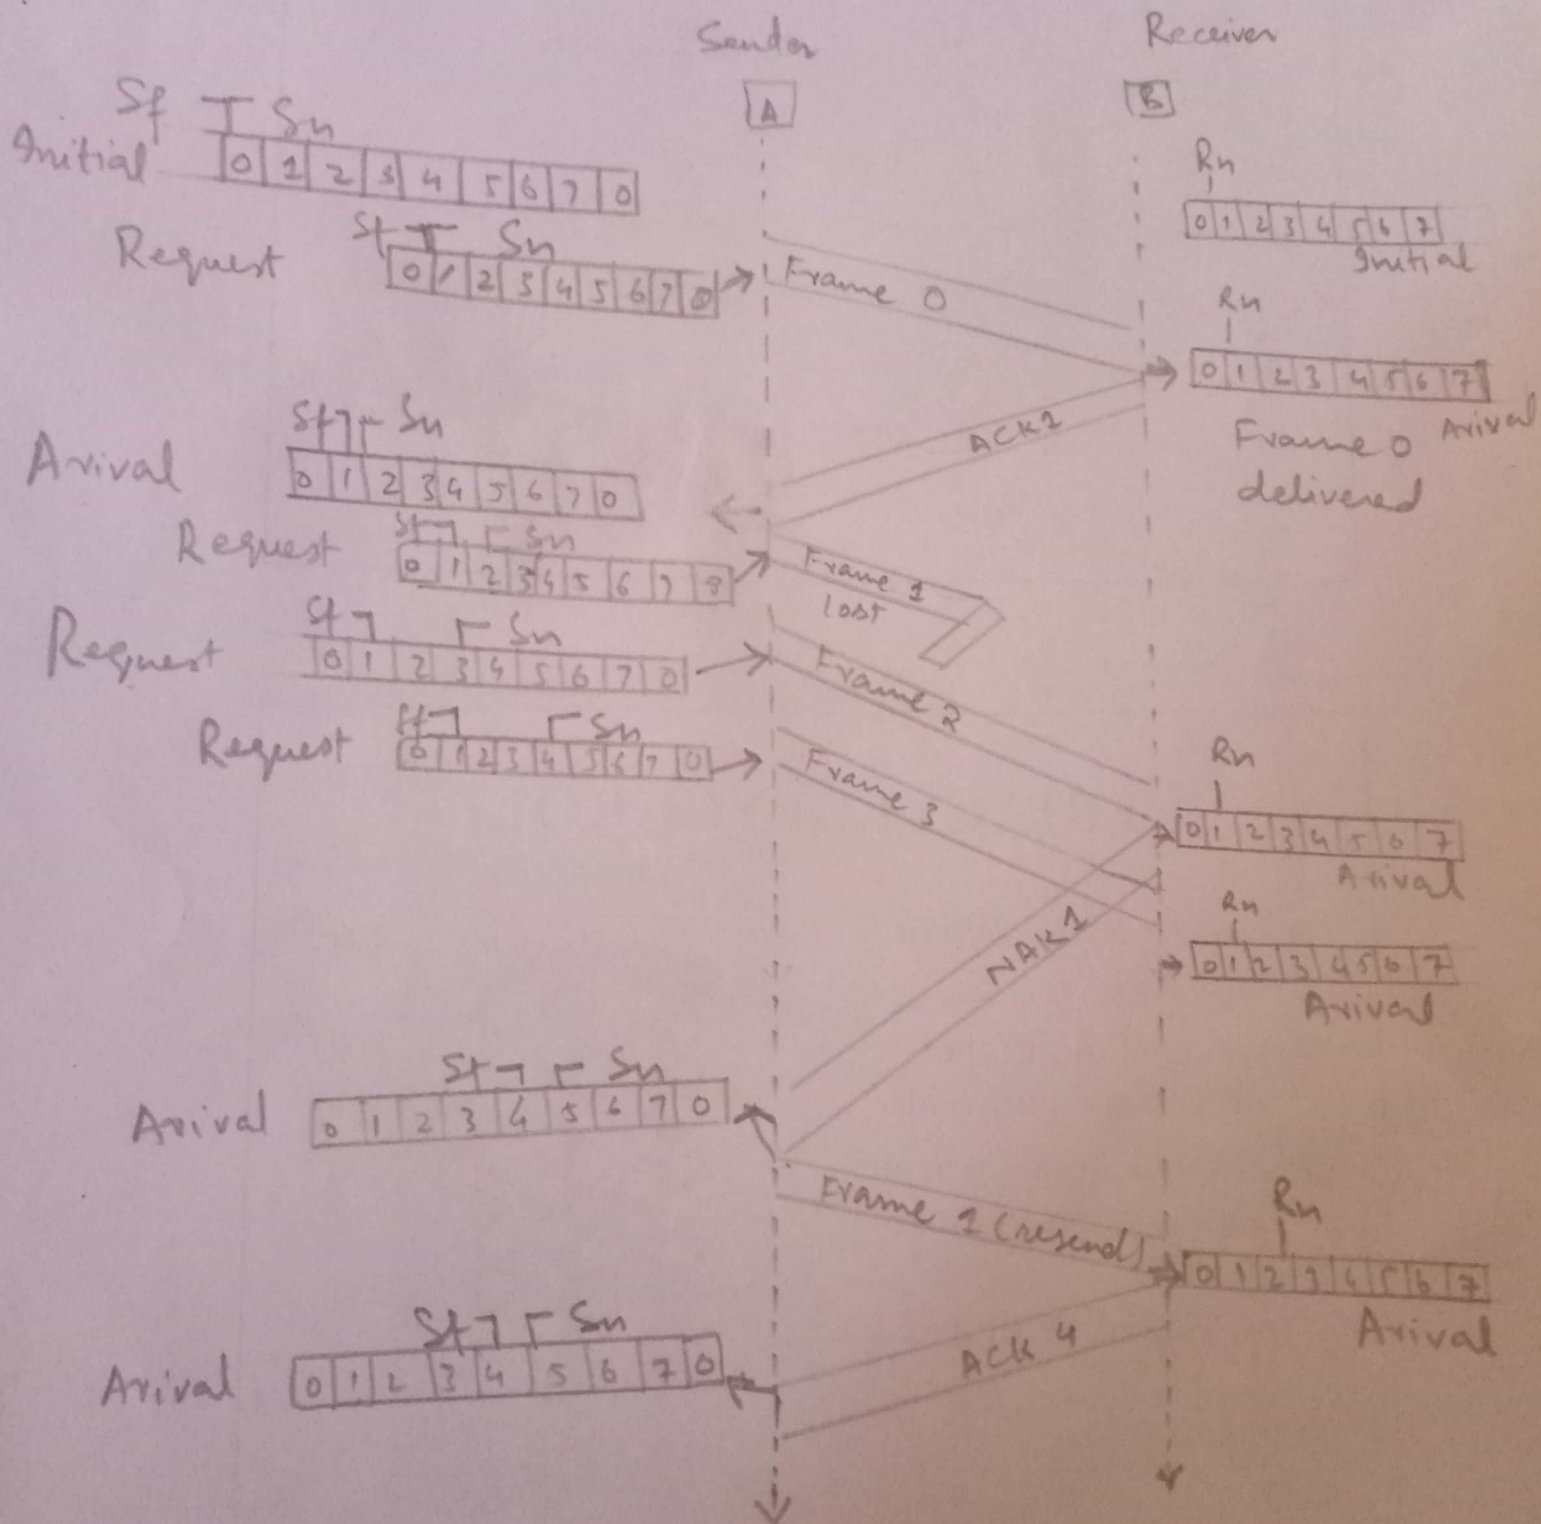 Sender Receiver
A B
Sf Sn
Initial 0 1 2 3 4 5 6 7 0
Rn
0 1 2 3 4 5 6 7
Initial
Sf Sn
Request 0 1 2 3 4 5 6 7 0
Frame 0
Rn
0 1 2 3 4 5 6 7
Arival
ACK 1
Frame 0
delivered
Sf Sn
Arival 0 1 2 3 4 5 6 7 0
Sf Sn
Request 0 1 2 3 4 5 6 7 8
Frame 1
lost
Sf Sn
Request 0 1 2 3 4 5 6 7 0
Frame 2
Sf Sn
Request 0 1 2 3 4 5 6 7 0
Frame 3
Rn
0 1 2 3 4 5 6 7
Arival
NAK 1
Rn
0 1 2 3 4 5 6 7
Arival
Sf Sn
Arival 0 1 2 3 4 5 6 7 0
Frame 1 (resend)
Rn
0 1 2 3 4 5 6 7
Arival
Sf Sn
Arival 0 1 2 3 4 5 6 7 0
ACK 4